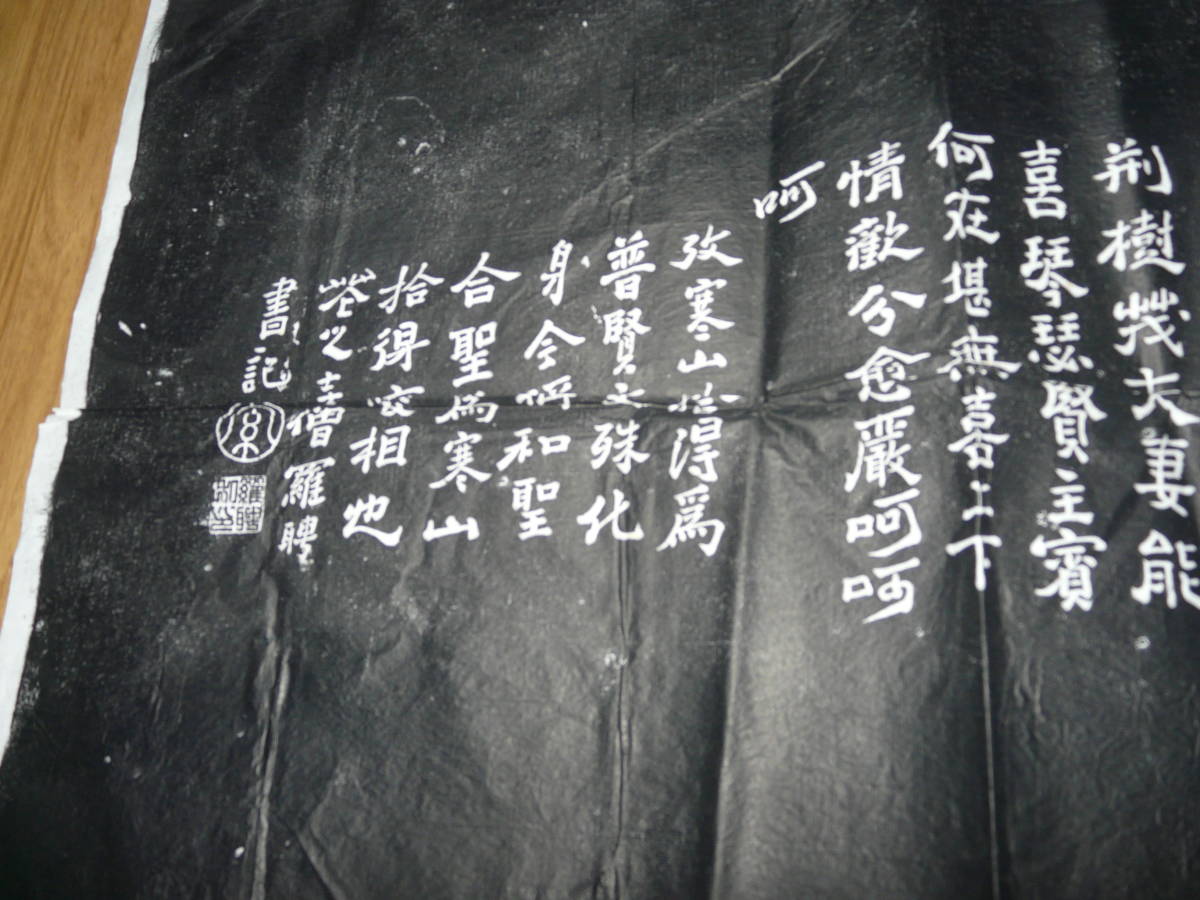 荆樹茂夫妻能
喜琴瑟賢主賓
何在堪無喜上下
情歡分愈嚴呵呵
呵
攷寒山拾得爲
普賢文殊化
身今稱和聖
合聖爲寒山
拾得變相也
花之寺僧羅聘
書記